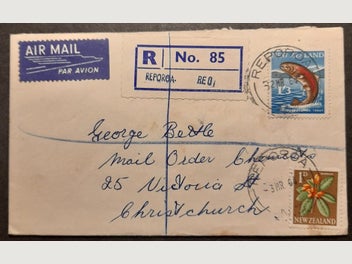 AIR MAIL
PAR AVION
R No. 85
REPOROA
REPOROA
ZEALAND
1/3
George Beale
Mail Order Chemists
25 Victoria St
Christchurch
REPOROA
1D
NEW ZEALAND